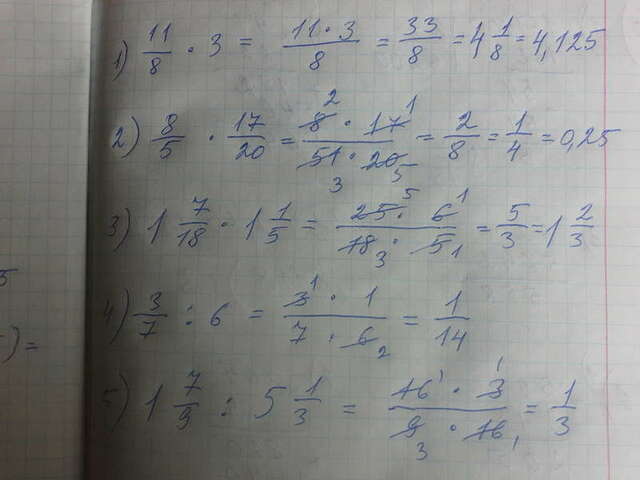 1) 11/8 · 3 = 11·3/8 = 33/8 = 4 1/8 = 4,125
2) 8/5 · 17/20 = 8 2 · 17 1/51 3 · 20 5 = 2/8 = 1/4 = 0,25
3) 1 7/18 · 1 1/5 = 25 5 · 6 1/18 3 · 5 1 = 5/3 = 1 2/3
4) 3/7 : 6 = 3 1 · 1/7 · 6 2 = 1/14
5) 1 7/9 : 5 1/3 = 16 1 · 3 1/9 3 · 16 1 = 1/3
) =